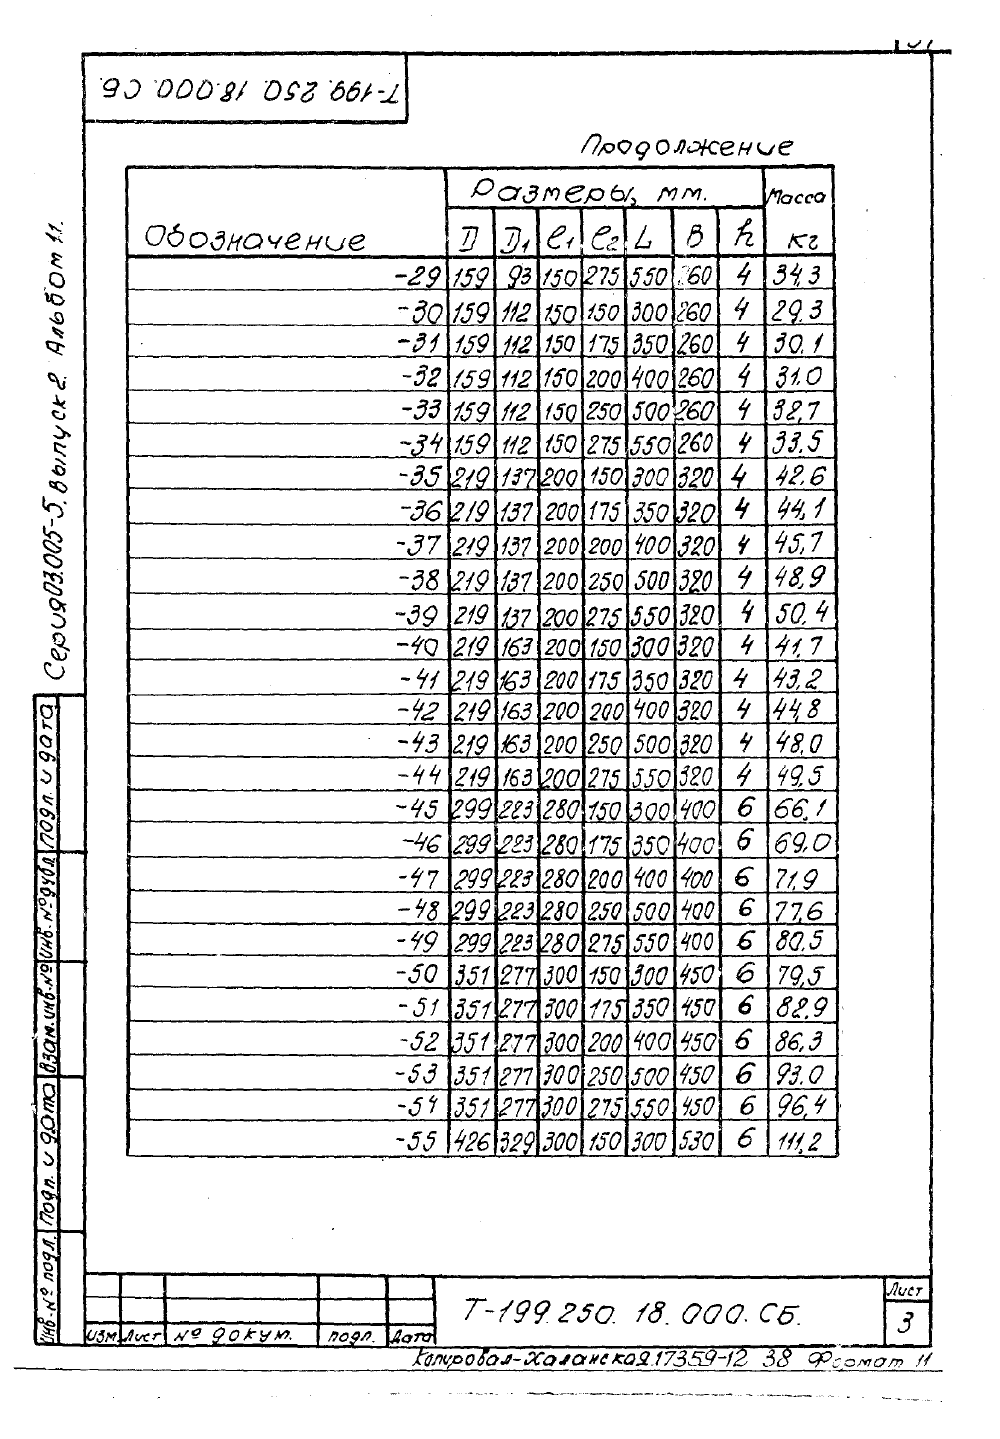 Т-199.250.18.000.СБ
Продолжение
Обозначение Размеры, мм. Масса кг
D D1 ℓ1 ℓ2 L B h
-29 159 93 150 275 550 260 4 34,3
-30 159 112 150 150 300 260 4 29,3
-31 159 112 150 175 350 260 4 30,1
-32 159 112 150 200 400 260 4 31,0
-33 159 112 150 250 500 260 4 32,7
-34 159 112 150 275 550 260 4 33,5
-35 219 137 200 150 300 320 4 42,6
-36 219 137 200 175 350 320 4 44,1
-37 219 137 200 200 400 320 4 45,7
-38 219 137 200 250 500 320 4 48,9
-39 219 137 200 275 550 320 4 50,4
-40 219 163 200 150 300 320 4 41,7
-41 219 163 200 175 350 320 4 43,2
-42 219 163 200 200 400 320 4 44,8
-43 219 163 200 250 500 320 4 48,0
-44 219 163 200 275 550 320 4 49,5
-45 299 223 280 150 300 400 6 66,1
-46 299 223 280 175 350 400 6 69,0
-47 299 223 280 200 400 400 6 71,9
-48 299 223 280 250 500 400 6 77,6
-49 299 223 280 275 550 400 6 80,5
-50 351 277 300 150 300 450 6 79,5
-51 351 277 300 175 350 450 6 82,9
-52 351 277 300 200 400 450 6 86,3
-53 351 277 300 250 500 450 6 93,0
-54 351 277 300 275 550 450 6 96,4
-55 426 329 300 150 300 530 6 111,2
Серия 03.005-5. Выпуск 2. Альбом 1.1.
Инв.№ подл. Подп. и дата Взам.инв.№ Инв.№ дубл. Подп. и дата
Изм Лист № докум. подп. Дата
Т-199.250.18.000.СБ.
Лист
3
Копировал-Халанская 17359-12 38 Формат 11